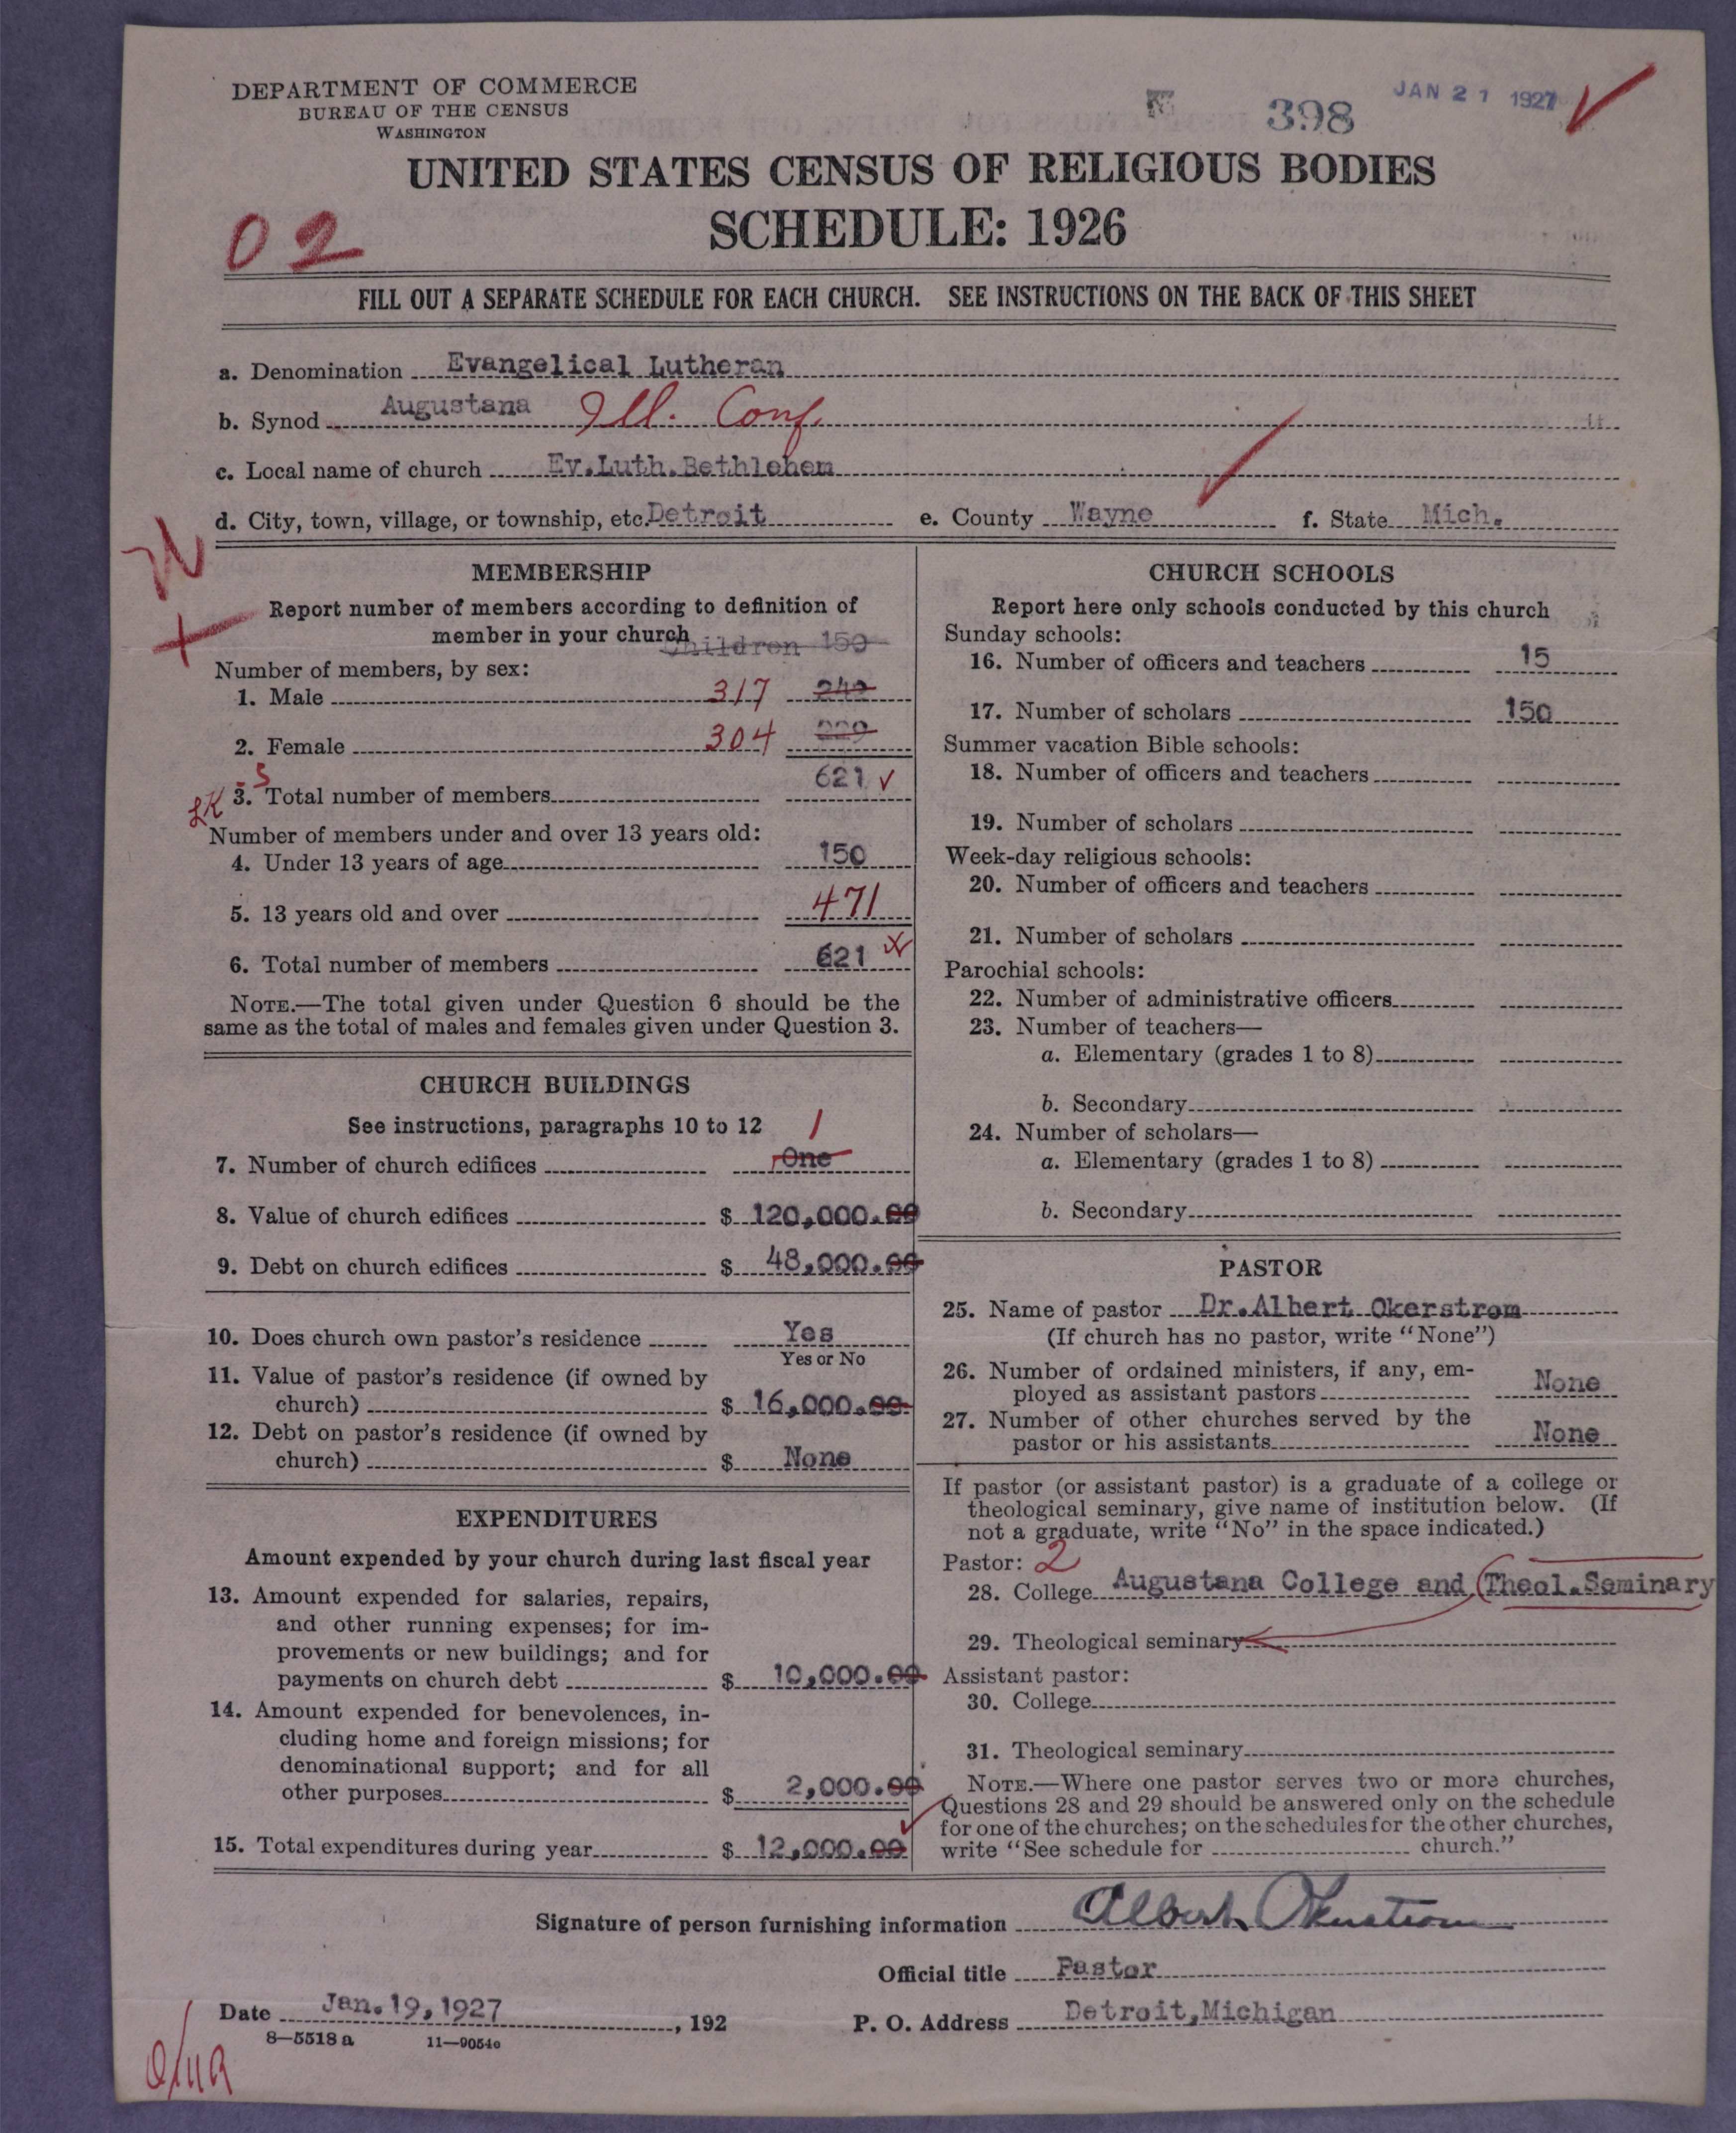 DEPARTMENT OF COMMERCE
BUREAU OF THE CENSUS
WASHINGTON
398
JAN 21 1927
UNITED STATES CENSUS OF RELIGIOUS BODIES
SCHEDULE: 1926
02
FILL OUT A SEPARATE SCHEDULE FOR EACH CHURCH. SEE INSTRUCTIONS ON THE BACK OF THIS SHEET
a. Denomination Evangelical Lutheran
b. Synod Augustana Ill. Conf.
c. Local name of church Ev.Luth.Bethlehem
d. City, town, village, or township, etc. Detroit e. County Wayne f. State Mich.
MEMBERSHIP
Report number of members according to definition of
member in your church
Children 150
Number of members, by sex:
1. Male 317 242
2. Female 304 229
3. Total number of members 621
Number of members under and over 13 years old:
4. Under 13 years of age 150
5. 13 years old and over 471
6. Total number of members 621
NOTE.—The total given under Question 6 should be the
same as the total of males and females given under Question 3.
CHURCH BUILDINGS
See instructions, paragraphs 10 to 12
7. Number of church edifices One 1
8. Value of church edifices $ 120,000.00
9. Debt on church edifices $ 48,000.00
10. Does church own pastor's residence Yes
Yes or No
11. Value of pastor's residence (if owned by
church) $ 16,000.00
12. Debt on pastor's residence (if owned by
church) $ None
EXPENDITURES
Amount expended by your church during last fiscal year
13. Amount expended for salaries, repairs,
and other running expenses; for im-
provements or new buildings; and for
payments on church debt $ 10,000.00
14. Amount expended for benevolences, in-
cluding home and foreign missions; for
denominational support; and for all
other purposes $ 2,000.00
15. Total expenditures during year $ 12,000.00
CHURCH SCHOOLS
Report here only schools conducted by this church
Sunday schools:
16. Number of officers and teachers 15
17. Number of scholars 150
Summer vacation Bible schools:
18. Number of officers and teachers
19. Number of scholars
Week-day religious schools:
20. Number of officers and teachers
21. Number of scholars
Parochial schools:
22. Number of administrative officers
23. Number of teachers—
a. Elementary (grades 1 to 8)
b. Secondary
24. Number of scholars—
a. Elementary (grades 1 to 8)
b. Secondary
PASTOR
25. Name of pastor Dr.Albert Okerstrom
(If church has no pastor, write "None")
26. Number of ordained ministers, if any, em-
ployed as assistant pastors None
27. Number of other churches served by the
pastor or his assistants None
If pastor (or assistant pastor) is a graduate of a college or
theological seminary, give name of institution below. (If
not a graduate, write "No" in the space indicated.)
Pastor: 2
28. College Augustana College and Theol.Seminary
29. Theological seminary
Assistant pastor:
30. College
31. Theological seminary
NOTE.—Where one pastor serves two or more churches,
Questions 28 and 29 should be answered only on the schedule
for one of the churches; on the schedules for the other churches,
write "See schedule for church."
Signature of person furnishing information Albert Okerstrom
Official title Pastor
Date Jan.19,1927, 192
P. O. Address Detroit,Michigan
8—5518 a 11—9054c